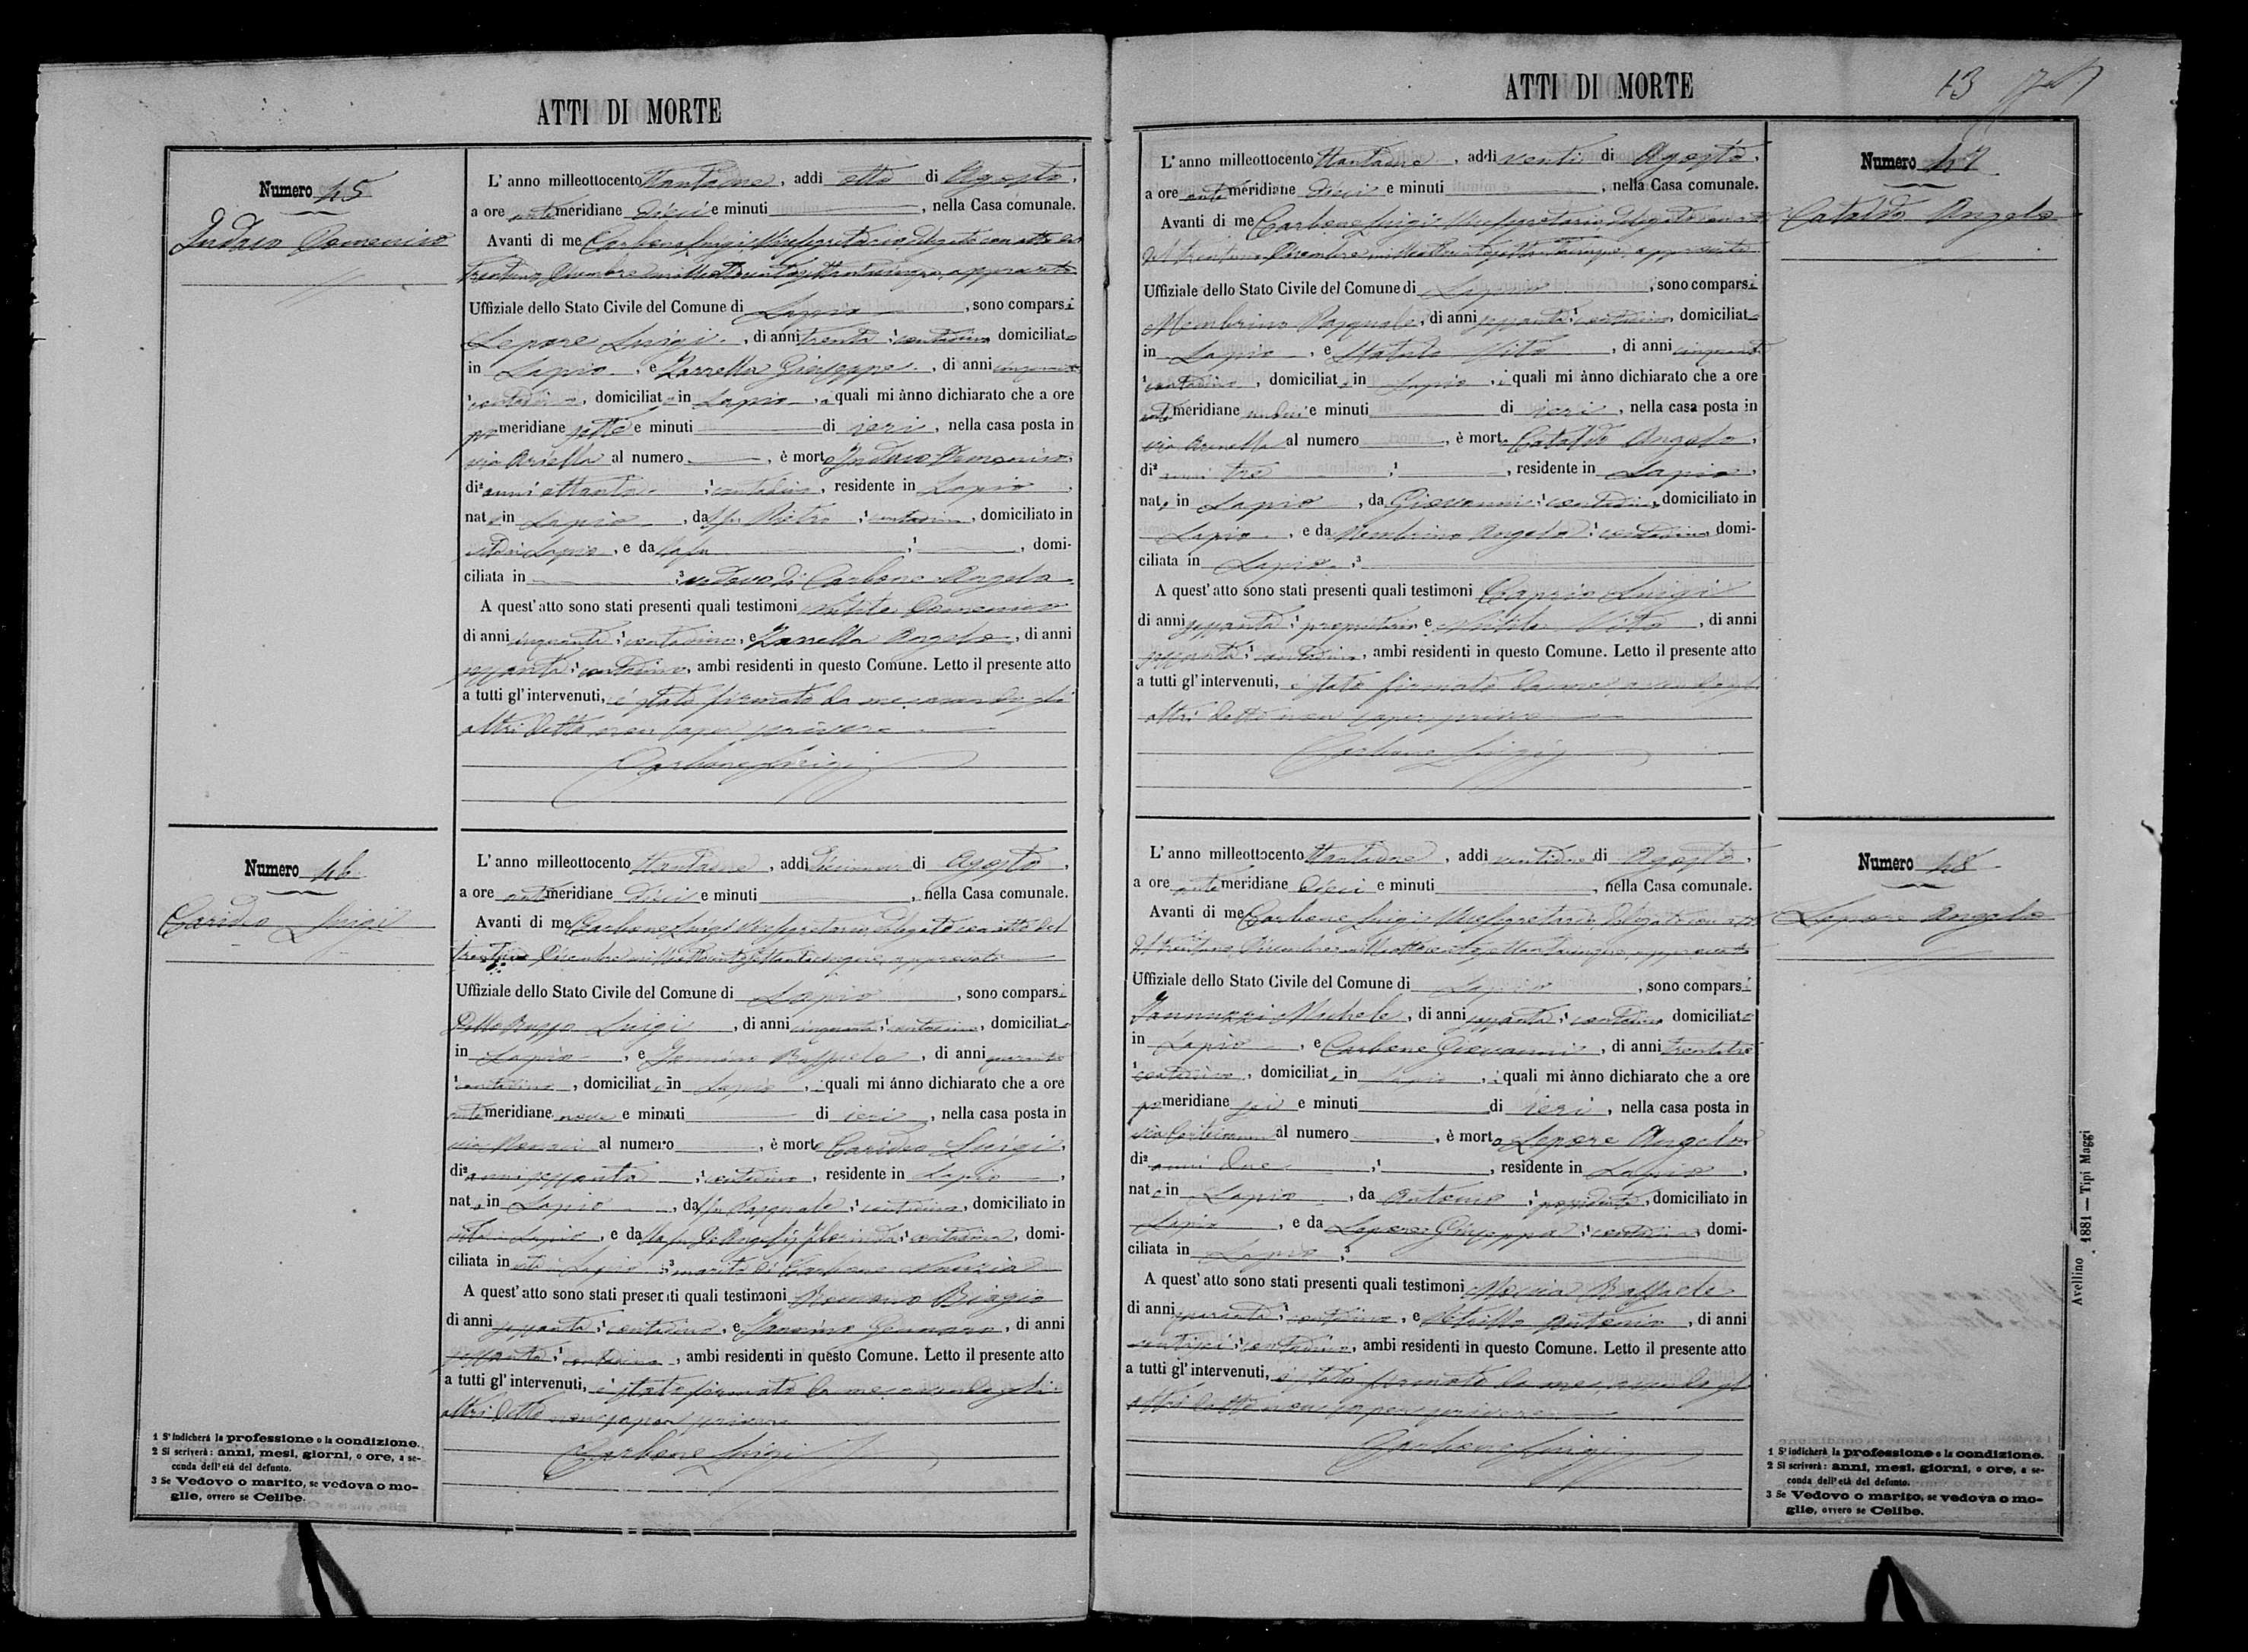 ATTI DI MORTE
Numero 45
Domenico
L' anno milleottocento Ottantadue, addì otto di Agosto,
a ore antimeridiane dieci e minuti, nella Casa comunale.
Avanti di me Carbone Luigi Vicesegretario delegato con atto del
trentuno Dicembre approvato
Uffiziale dello Stato Civile del Comune di Lapio, sono comparsi
Lepore Luigi, di anni trenta, contadino domiciliato
in Lapio, e Zarrella Giuseppe, di anni cinquanta
contadino, domiciliato in Lapio, quali mi ànno dichiarato che a ore
pomeridiane sette e minuti di ieri, nella casa posta in
via Ariella al numero, è morto Domenico,
di anni ottanta, contadino, residente in Lapio,
nato in Lapio, da fu Pietro, contadino, domiciliato in
vita in Lapio, e da, domi-
ciliata in vedovo di Carbone Angela
A quest' atto sono stati presenti quali testimoni Domenico
di anni cinquanta, contadino, e Zarrella Angelo, di anni
sessanta, contadino, ambi residenti in questo Comune. Letto il presente atto
a tutti gl' intervenuti, è stato firmato da me avendo gli
altri detto non saper scrivere
Carbone Luigi
Numero 46
Carideo Luigi
L' anno milleottocento Ottantadue, addì di Agosto,
a ore antimeridiane dieci e minuti, nella Casa comunale.
Avanti di me Carbone Luigi Vicesegretario delegato con atto del
Dicembre approvato
Uffiziale dello Stato Civile del Comune di Lapio, sono comparsi
Luigi, di anni cinquanta, contadino, domiciliato
in Lapio, e Raffaele, di anni quaranta
contadino, domiciliato in Lapio, i quali mi ànno dichiarato che a ore
antimeridiane nove e minuti di ieri, nella casa posta in
via al numero, è morto Carideo Luigi,
di anni sessanta, contadino, residente in Lapio,
nato in Lapio, da fu Pasquale, contadino, domiciliato in
vita in Lapio, e da, contadina, domi-
ciliata in vita Lapio, marito di Carbone
A quest' atto sono stati presenti quali testimoni Romano Biagio
di anni sessanta, contadino, e Gennaro, di anni
sessanta, contadino, ambi residenti in questo Comune. Letto il presente atto
a tutti gl' intervenuti, è stato firmato da me avendo gli
altri detto non saper scrivere
Carbone Luigi
1 S' indicherà la professione o la condizione.
2 Si scriverà: anni, mesi, giorni, o ore, a se-
conda dell' età del defunto.
3 Se Vedovo o marito, se vedova o mo-
glie, ovvero se Celibe.
ATTI DI MORTE
43
Numero 47
Cataldo Angelo
L' anno milleottocento Ottantadue, addì venti di Agosto,
a ore antimeridiane dieci e minuti, nella Casa comunale.
Avanti di me Carbone Luigi Vicesegretario delegato con atto
del trentuno Dicembre approvato
Uffiziale dello Stato Civile del Comune di Lapio, sono comparsi
Membrino Pasquale, di anni sessanta, contadino, domiciliato
in Lapio, e Vito, di anni cinquanta
contadino, domiciliato in Lapio, i quali mi ànno dichiarato che a ore
antimeridiane undici e minuti di ieri, nella casa posta in
via al numero, è morto Cataldo Angelo,
di anni tre, residente in Lapio,
nato in Lapio, da Giovanni, contadino, domiciliato in
Lapio, e da Membrino Angela, contadina, domi-
ciliata in Lapio
A quest' atto sono stati presenti quali testimoni Caprio Luigi
di anni sessanta, proprietario e Vito, di anni
sessanta, contadino, ambi residenti in questo Comune. Letto il presente atto
a tutti gl' intervenuti, è stato firmato da me avendo gli
altri detto non saper scrivere
Carbone Luigi
Numero 48
Lepore Angelo
L' anno milleottocento Ottantadue, addì ventidue di Agosto,
a ore antimeridiane dieci e minuti, nella Casa comunale.
Avanti di me Carbone Luigi Vicesegretario delegato con atto
del trentuno Dicembre approvato
Uffiziale dello Stato Civile del Comune di Lapio, sono comparsi
Iannuzzi Michele, di anni sessanta, contadino domiciliato
in Lapio, e Carbone Giovanni, di anni trentatre
contadino, domiciliato in Lapio, i quali mi ànno dichiarato che a ore
pomeridiane sei e minuti di ieri, nella casa posta in
via al numero, è morto Lepore Angelo
di anni due, residente in Lapio,
nato in Lapio, da Antonio, possidente, domiciliato in
Lapio, e da Lepore Giuseppa, contadina, domi-
ciliata in Lapio
A quest' atto sono stati presenti quali testimoni Raffaele
di anni quaranta, contadino, e Antonio, di anni
ventisei, contadino, ambi residenti in questo Comune. Letto il presente atto
a tutti gl' intervenuti, è stato firmato da me avendo gli
altri detto non sapere scrivere
Carbone Luigi
1 S' indicherà la professione o la condizione.
2 Si scriverà: anni, mesi, giorni, o ore, a se-
conda dell' età del defunto.
3 Se Vedovo o marito, se vedova o mo-
glie, ovvero se Celibe.
Avellino 1881 — Tipi Maggi